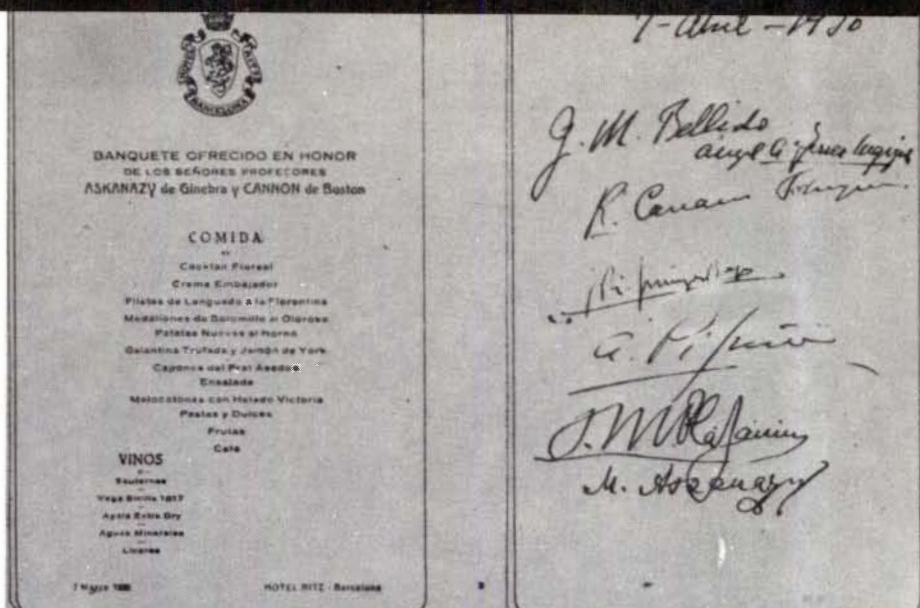 BARCELONA
BANQUETE OFRECIDO EN HONOR
DE LOS SEÑORES PROFECORES
ASKANAZY de Ginebra y CANNON de Boston
COMIDA
Cocktail Floreal
Crema Embajador
Filetes de Lenguado a la Florentina
Medallones de Solomillo al Oloroso
Patatas Nuevas al Horno
Galantina Trufada y Jamón de York
Capones del Prat Asados
Ensalada
Melocotones con Helado Victoria
Pastas y Dulces
Frutas
Café
VINOS
Sauternes
Vega Sicilia 1917
Ayala Extra Dry
Aguas Minerales
Licores
HOTEL RITZ - Barcelona
7 - Abril - 1930
G. M. Bellido
R. Carrasco
A. Pi Suñer
M. Askanazy